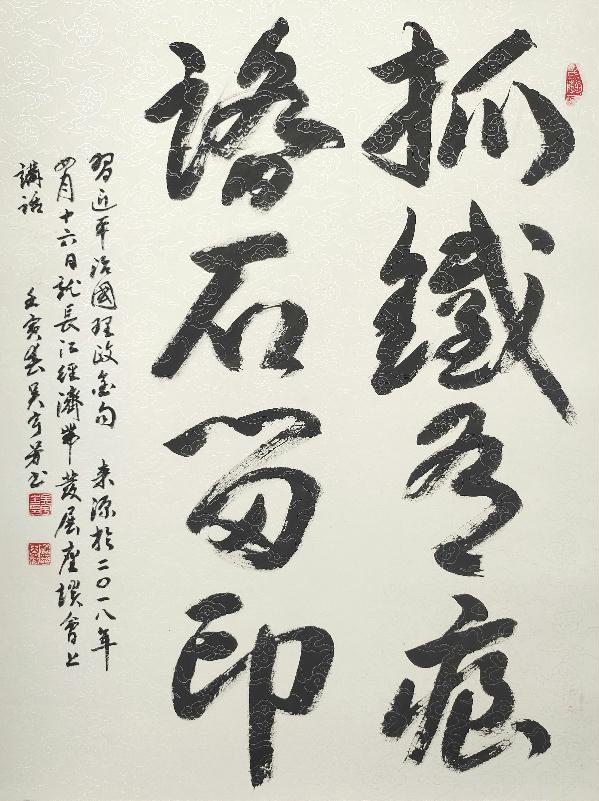 抓鐵有痕
踏石留印
習近平治國理政金句 来源於二〇一八年
四月十六日就長江經濟帶發展座談會上
講話 壬寅春吴芳书